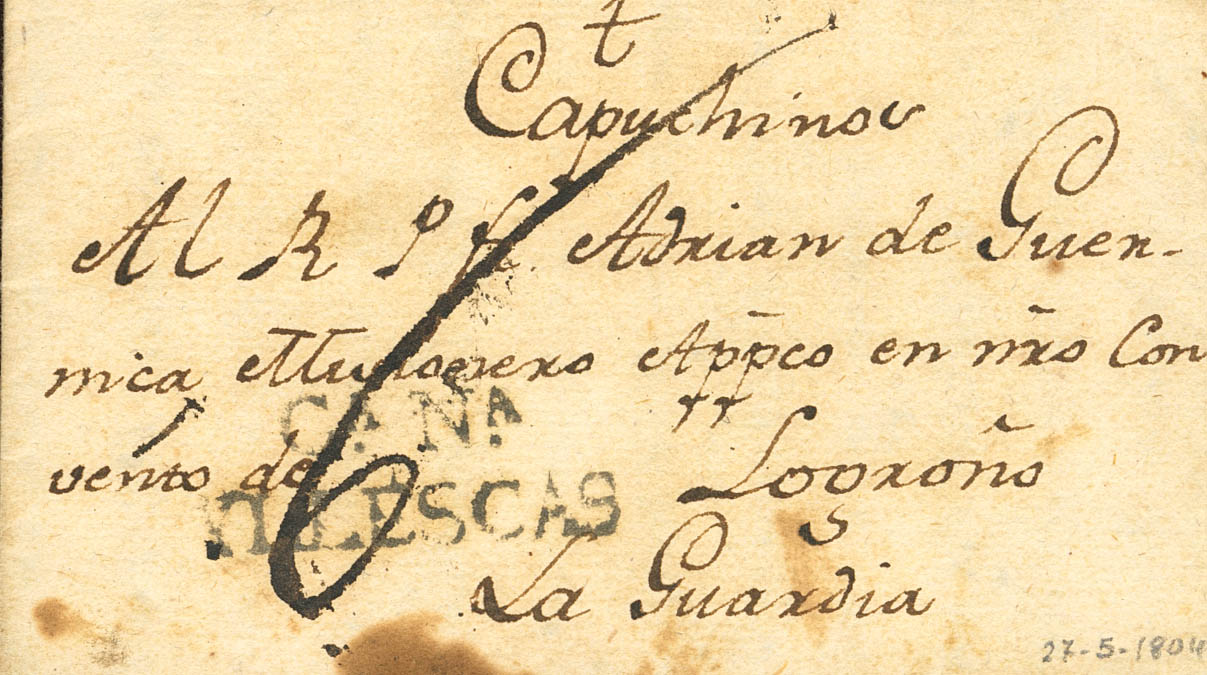 †
Capuchinos
Al R P fr. Adrian de Guer-
nica Missionero Appco en nr̃o Con
vento de Logroño
La Guardia
C.A N.A
ILLESCAS
6
27-5-1804